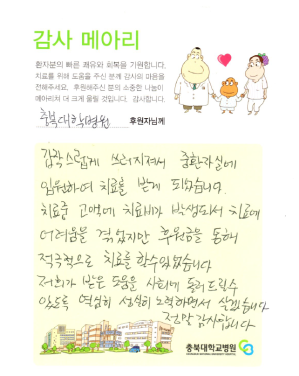 감사 메아리
환자분의 빠른 쾌유와 회복을 기원합니다.
치료를 위해 도움을 주신 분께 감사의 마음을
전해주세요. 후원해주신 분의 소중한 나눔이
메아리쳐 더 크게 울릴 것입니다. 감사합니다.
충북대학병원 후원자님께
갑작스럽게 쓰러지져서 중환자실에
입원하여 치료를 받게 되었습니다.
치료중 고액에 치료비가 발생되서 치료에
어려움을 겪었지만 후원금을 통해
적극적으로 치료를 할수있었습니다
저희가 받은 도움을 사회에 돌려드릴수
있도록 열심히 성실히 노력하면서 살겠습니다
정말 감사합니다
충북대학교병원